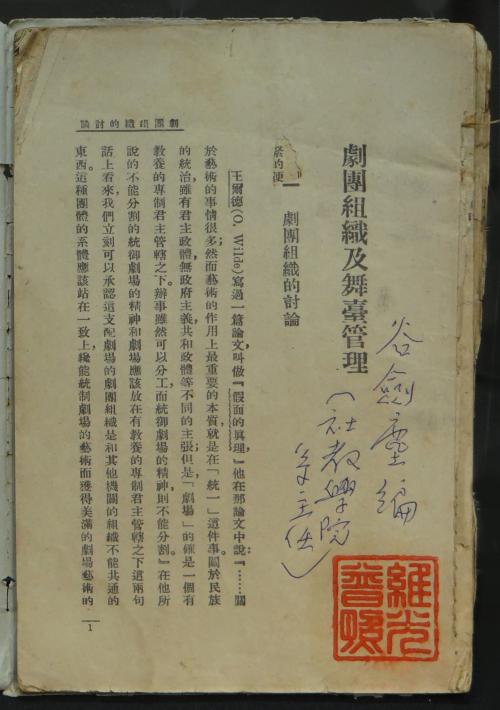 劇團組織及舞臺管理
谷劍塵編
（社教學院
主任）
一 劇團組織的討論
王爾德(O. Wilde)寫過一篇論文，叫做『假面的眞理』，他在那論文中說：『……關
於藝術的事情很多，然而藝術的作用上最重要的本質，就是在「統一」這件事。關於民族
的統治雖有君主政體無政府主義共和政體等不同的主張；但是「劇場」的確是一個有
教養的專制君主管轄之下。辦事雖然可以分工，而統御劇場的精神，則不能分割。』在他所
說的不能分割的統御劇場的精神和劇場應該放在有教養的專制君主管轄之下這兩句
話上看來，我們立刻可以承認這支配劇場的劇團組織是和其他機關的組織不能共通的
東西。這種團體的系體應該站在一致上，纔能統制劇場的藝術而獲得美滿的劇場藝術的
劇團組織的討論
1
維光
普照